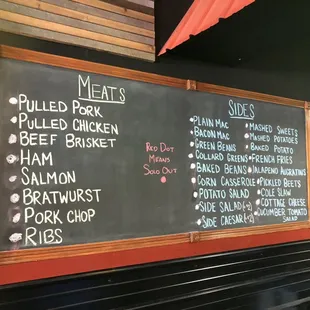 Meats
Pulled Pork
Pulled Chicken
Beef Brisket
Ham
Salmon
Bratwurst
Pork Chop
Ribs
Red Dot
Means
Sold Out
Sides
Plain Mac
Bacon Mac
Green Beans
Collard Greens
Baked Beans
Corn Casserole
Potato Salad
Side Salad
Side Caesar
Mashed Sweets
Mashed Potatoes
Baked Potato
French Fries
Jalapeno Augratins
Pickled Beets
Cole Slaw
Cottage Cheese
Cucumber Tomato
Salad